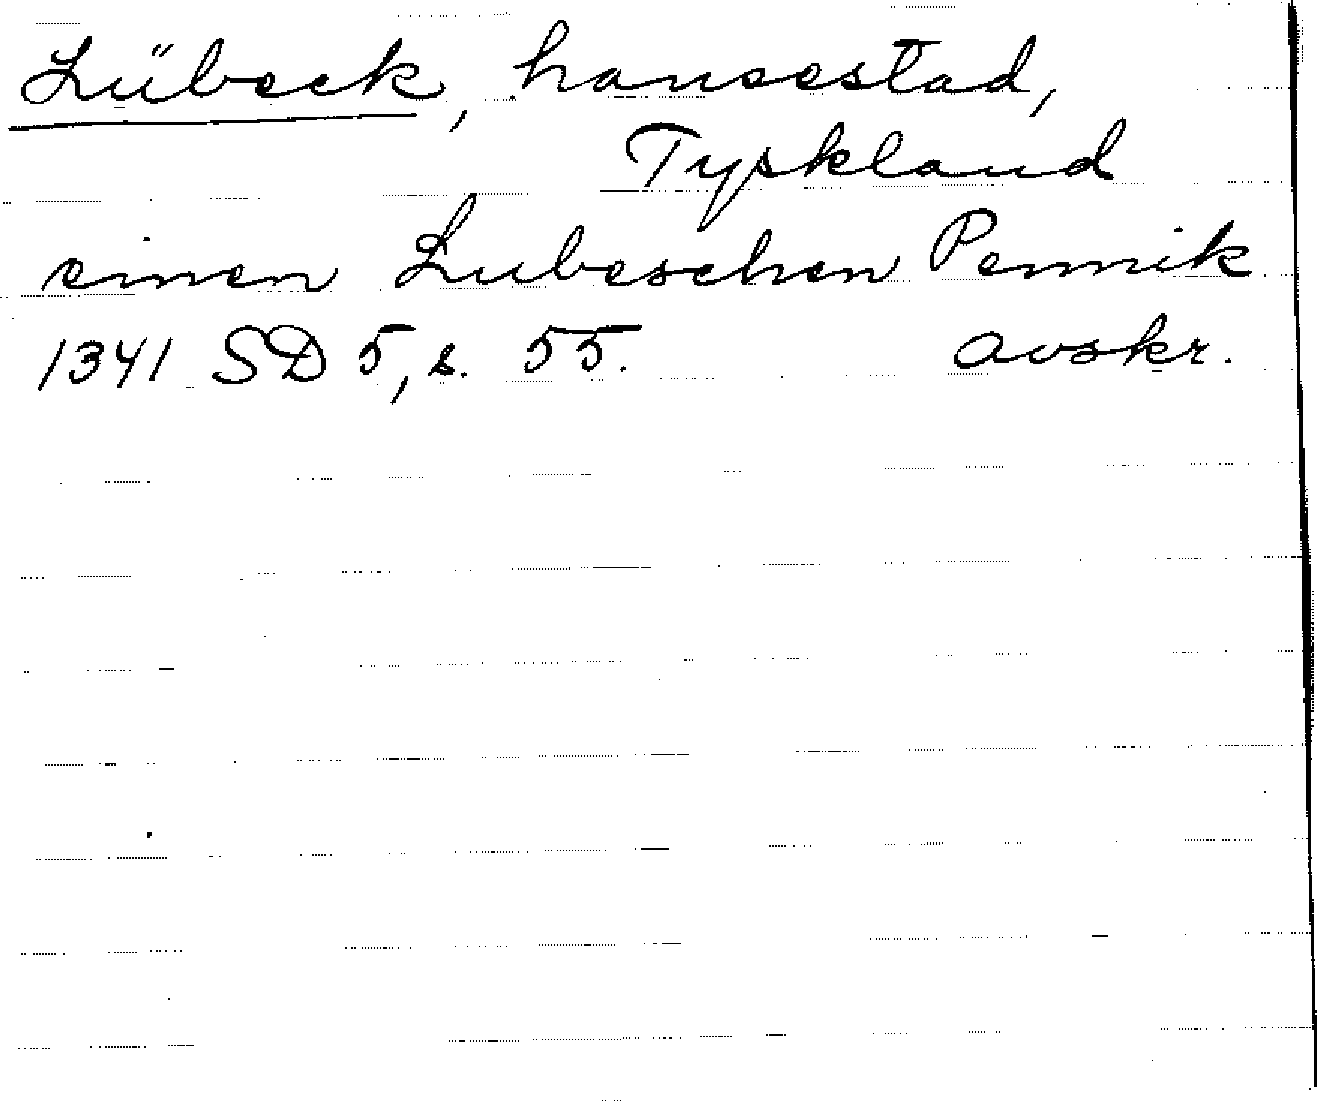 Lübeck, hansestad,
Tyskland
einen Lubeschen Pennik
1341 SD 5, s. 55. avskr.